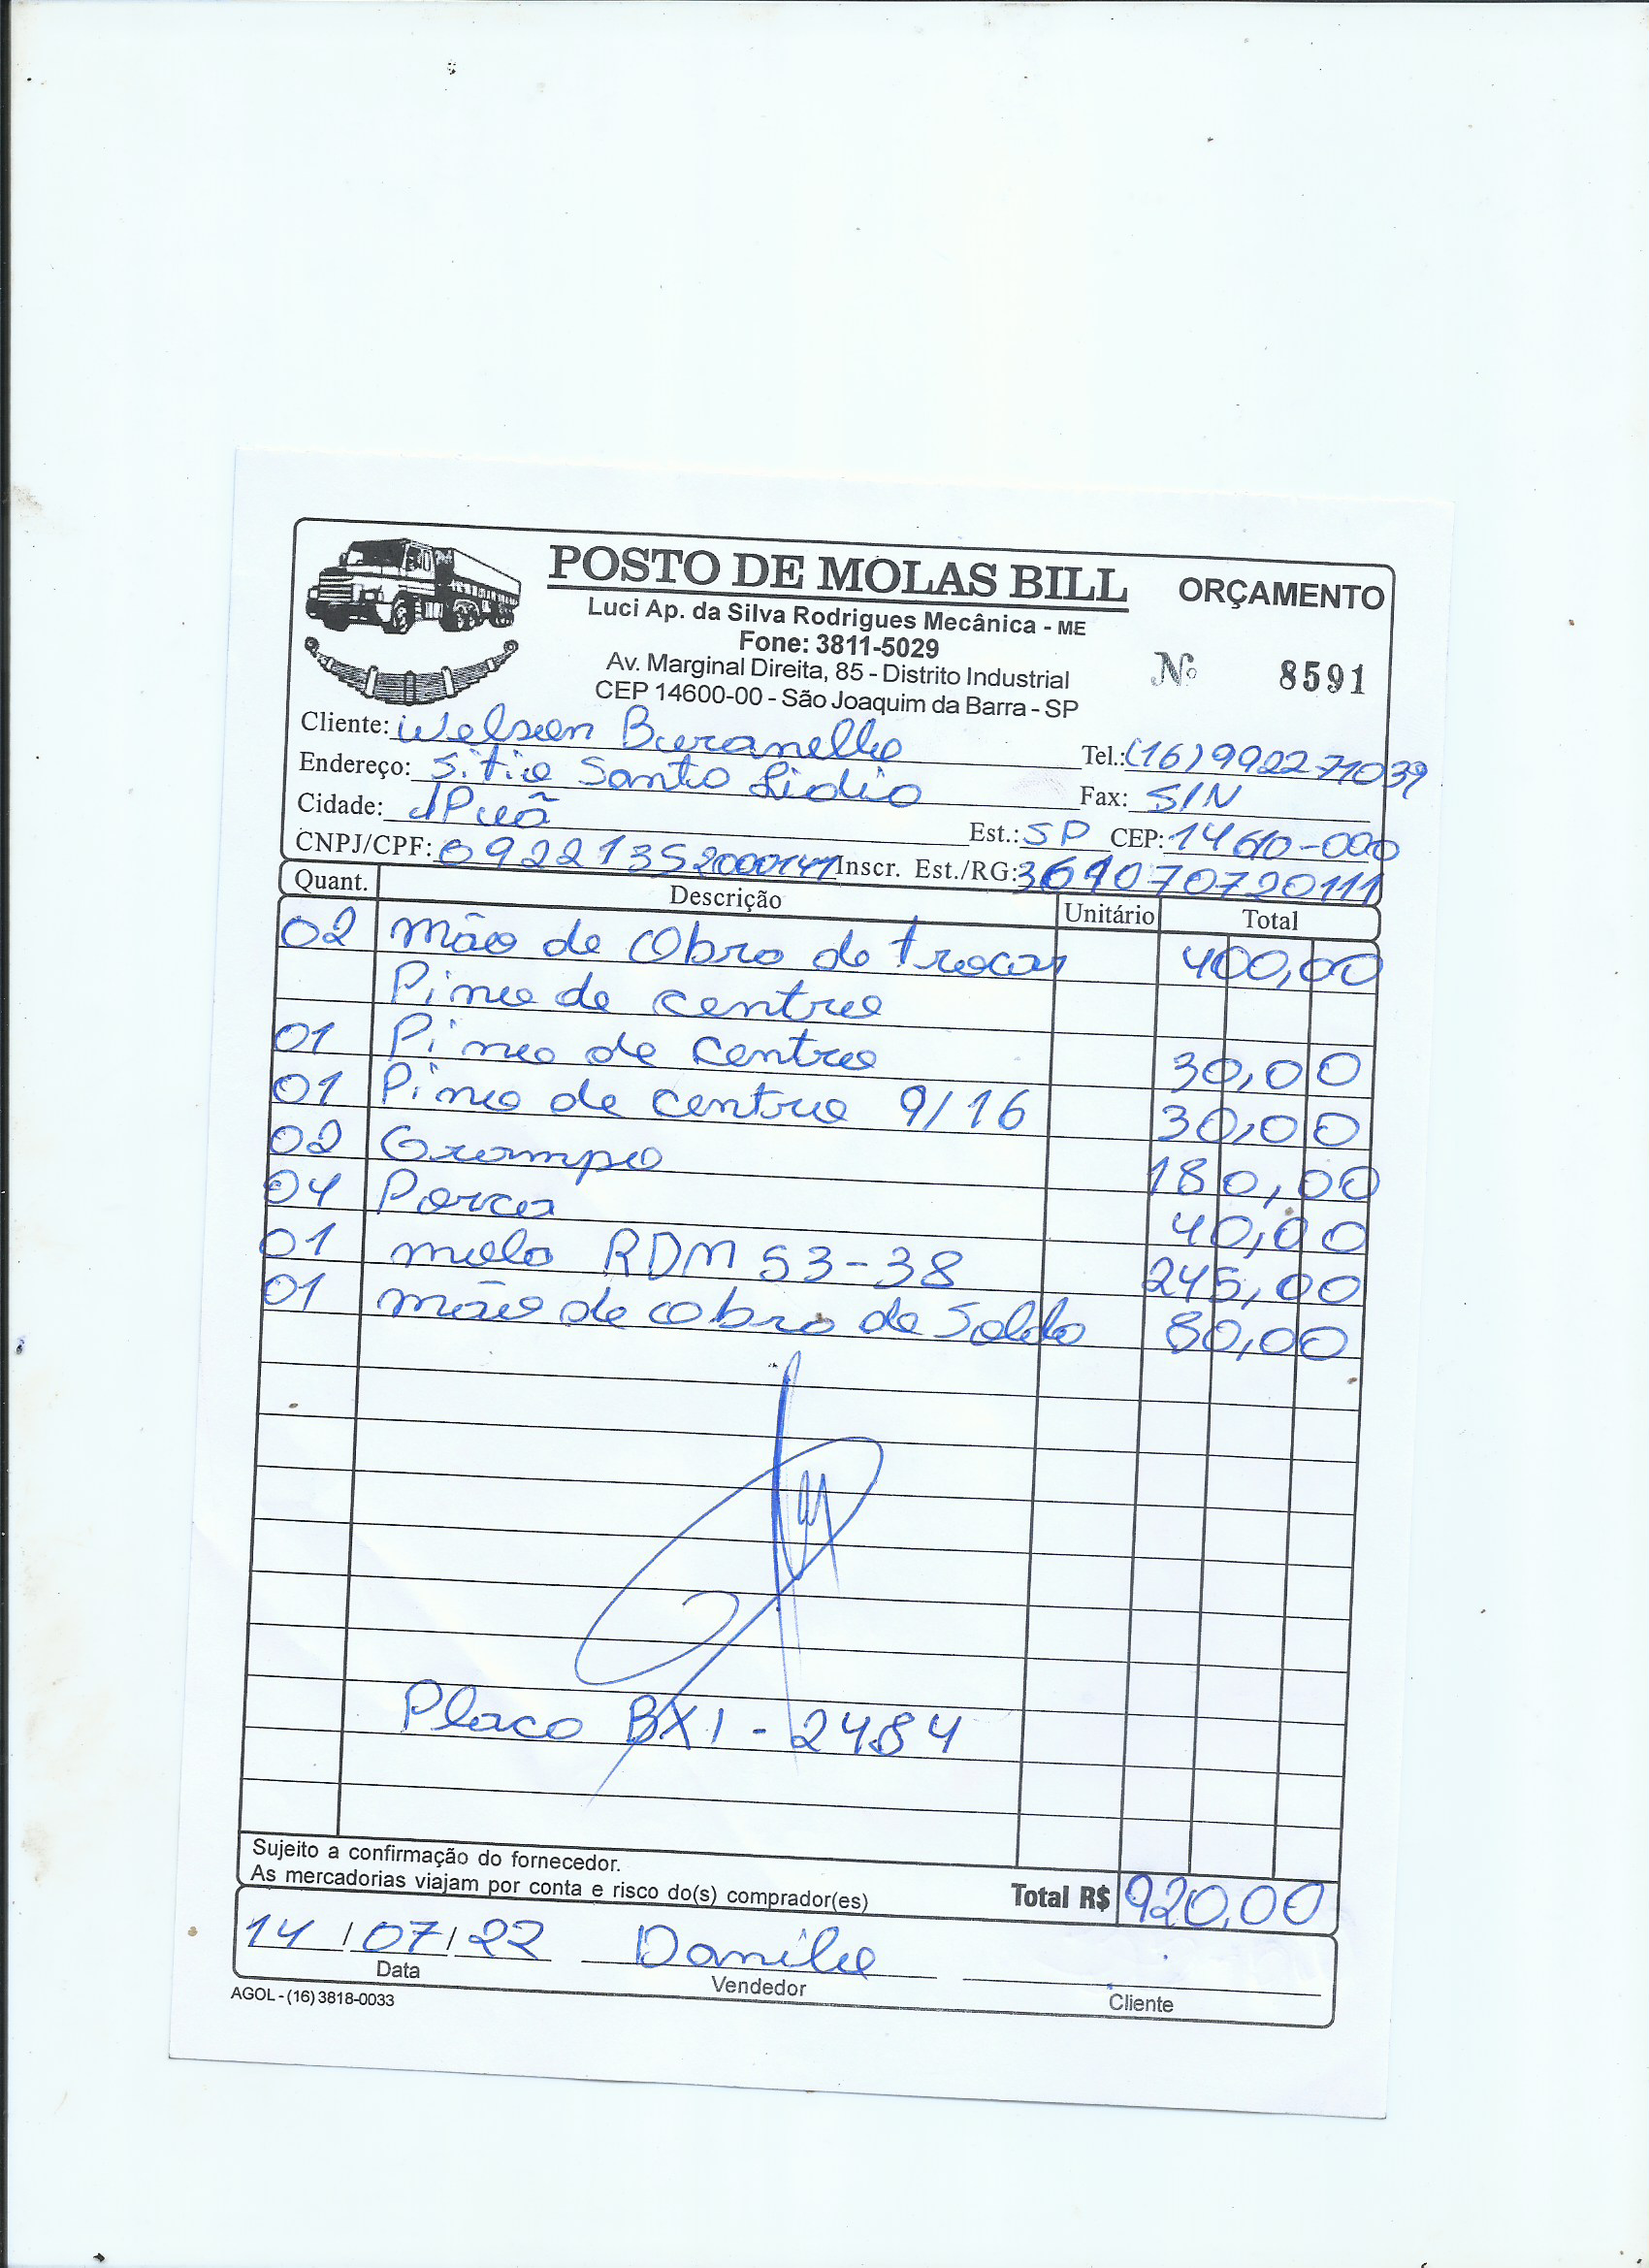 POSTO DE MOLAS BILL
ORÇAMENTO
Luci Ap. da Silva Rodrigues Mecânica - ME
Fone: 3811-5029
Av. Marginal Direita, 85 - Distrito Industrial
CEP 14600-00 - São Joaquim da Barra - SP
Nº 8591
Cliente: Welson Buranello Tel.: (16) 992271039
Endereço: Sitio Santo Lidio Fax: S/N
Cidade: IPuã Est.: SP CEP: 14610-000
CNPJ/CPF: 09221352000141 Inscr. Est./RG: 369070720111
Quant. Descrição Unitário Total
02 mão de Obra de trocar 400,00
Pino de centro
01 Pino de centro 30,00
01 Pino de centro 9/16 30,00
02 Grampo 180,00
04 Porca 40,00
01 mola RDM 53-38 245,00
01 mão de obra de Solda 80,00
Placa BXI - 2484
Sujeito a confirmação do fornecedor.
As mercadorias viajam por conta e risco do(s) comprador(es)
Total R$ 920,00
14 / 07 / 22 Danilo
Data Vendedor Cliente
AGOL - (16) 3818-0033